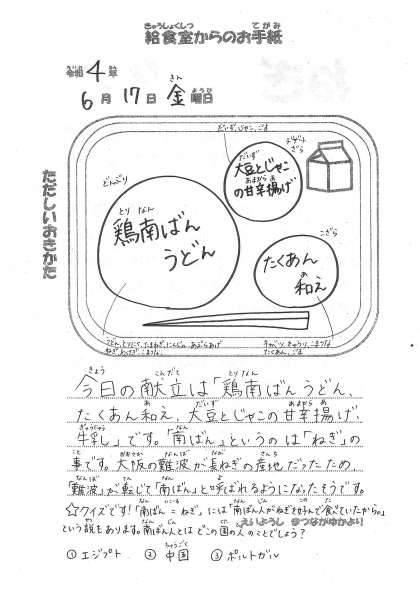 給食室からのお手紙
令和4年
6月17日金曜日
ただしいおきかた
だいず、じゃこ、ごま
どんぶり
大豆とじゃこ
の甘辛揚げ
デザート
ざら
鶏南ばん
うどん
こざら
たくあん
和え
うどん、とりにく、たまねぎ、にんじん、あぶらあげ
ねぎ、わけぎ、こまつな
キャベツ、きゅうり、こまつな
たくあん、ごま
今日の献立は「鶏南ばんうどん、
たくあん和え、大豆とじゃこの甘辛揚げ、
牛乳」です。「南ばん」というのは「ねぎ」の
事です。大阪の難波が長ねぎの産地だったため、
「難波」が転じて「南ばん」と呼ばれるようになったそうです。
☆クイズです!「南ばん=ねぎ」には「南ばん人がねぎを好んで食べていたから。」
という説もあります。南ばん人とはどこの国の人のことでしょう?
えいようし
①エジプト ②中国 ③ポルトガル